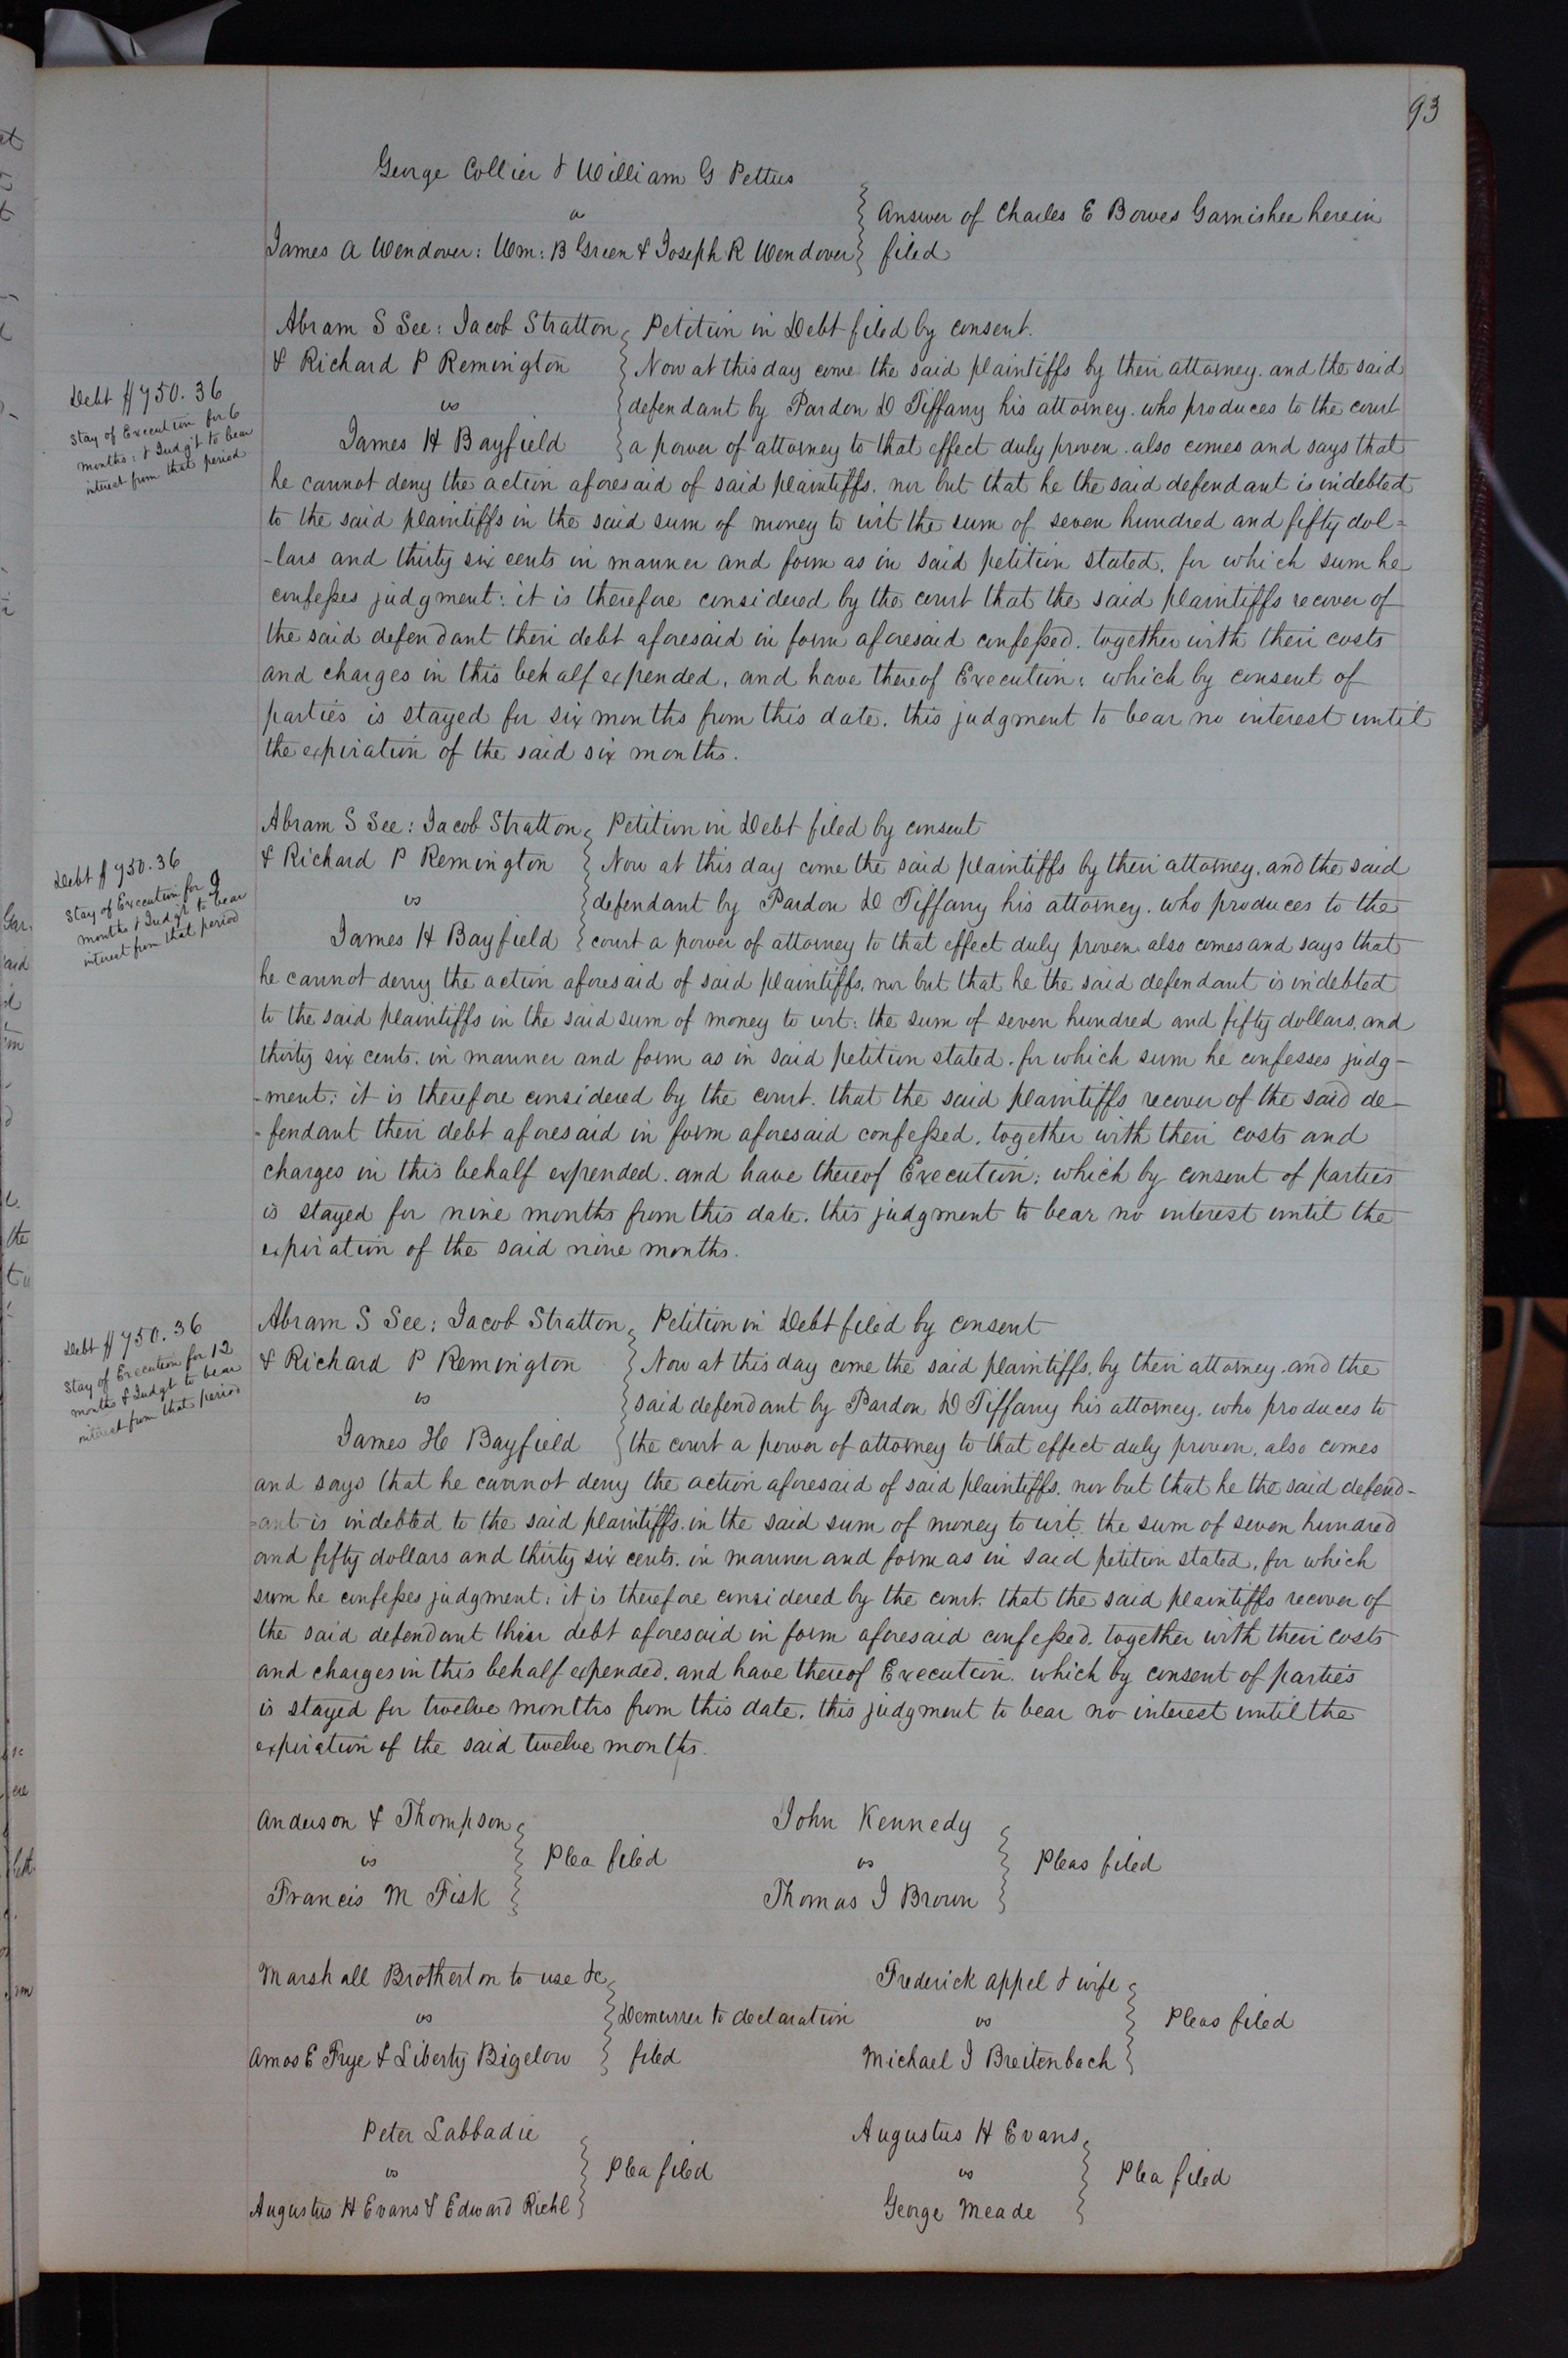 93
George Collier & William G Pettus
vs
James A Wendover: Wm: B Green & Joseph R Wendover
Answer of Charles E Bowes Garnishee herein
filed
Debt $750.36
Stay of Execution for 6
months: & Judgt to bear
interest from that period
Abram S See: Jacob Stratton
& Richard P Remington
vs
James H Bayfield
Petition in Debt filed by consent.
Now at this day come the said plaintiffs by their attorney. and the said
defendant by Pardon D Tiffany his attorney. who produces to the court
a power of attorney to that effect duly proven. also comes and says that
he cannot deny the action aforesaid of said plaintiffs. nor but that he the said defendant is indebted
to the said plaintiffs in the said sum of money to wit the sum of seven hundred and fifty dol=
-lars and thirty six cents in manner and form as in said petition stated, for which sum he
confesses judgment: it is therefore considered by the court that the said plaintiffs recover of
the said defendant their debt aforesaid in form aforesaid confessed. together with their costs
and charges in this behalf expended, and have thereof Execution: which by consent of
parties is stayed for six months from this date. this judgment to bear no interest until
the expiration of the said six months.
Debt $750.36
Stay of Execution for 9
months & Judgt to bear
interest from that period
Abram S See: Jacob Stratton
& Richard P Remington
vs
James H Bayfield
Petition in Debt filed by consent
Now at this day come the said plaintiffs by their attorney, and the said
defendant by Pardon D Tiffany his attorney. who produces to the
court a power of attorney to that effect duly proven also comes and says that
he cannot deny the action aforesaid of said plaintiffs, nor but that he the said defendant is indebted
to the said plaintiffs in the said sum of money to wit: the sum of seven hundred and fifty dollars, and
thirty six cents. in manner and form as in said petition stated. for which sum he confesses judg-
-ment: it is therefore considered by the court. that the said plaintiffs recover of the said de-
-fendant their debt aforesaid in form aforesaid confessed, together with their costs and
charges in this behalf expended. and have thereof Execution: which by consent of parties
is stayed for nine months from this date. this judgment to bear no interest until the
expiration of the said nine months.
Debt $750.36
Stay of Execution for 12
months & Judgt to bear
interest from that period
Abram S See: Jacob Stratton
& Richard P Remington
vs
James H Bayfield
Petition in Debt filed by consent
Now at this day come the said plaintiffs, by their attorney. and the
said defendant by Pardon D Tiffany his attorney. who produces to
the court a power of attorney to that effect duly proven, also comes
and says that he cannot deny the action aforesaid of said plaintiffs. nor but that he the said defend-
-ant is indebted to the said plaintiffs. in the said sum of money to wit. the sum of seven hundred
and fifty dollars and thirty six cents. in manner and form as in said petition stated, for which
sum he confesses judgment: it is therefore considered by the court. that the said plaintiffs recover of
the said defendant their debt aforesaid in form aforesaid confessed. together with their costs
and charges in this behalf expended. and have thereof Execution. which by consent of parties
is stayed for twelve months from this date. this judgment to bear no interest until the
expiration of the said twelve months.
Anderson & Thompson
vs
Francis M Fisk
Plea filed
John Kennedy
vs
Thomas J Brown
Pleas filed
Marshall Brotherton to use &c
vs
Amos E Frye & Liberty Bigelow
Demurrer to declaration
filed
Frederick Appel & wife
vs
Michael J Breitenbach
Pleas filed
Peter Labbadie
vs
Augustus H Evans & Edward Riehl
Plea filed
Augustus H Evans
vs
George Meade
Plea filed